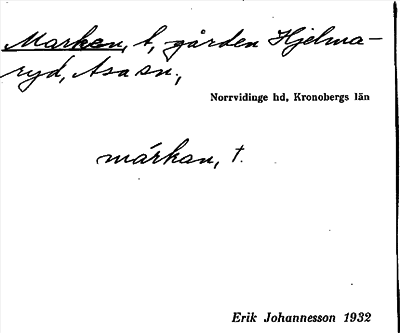 Marken, t, gården Hjelma-
ryd, Asa sn.,
Norrvidinge hd, Kronobergs län
márkan, t.
Erik Johannesson 1932